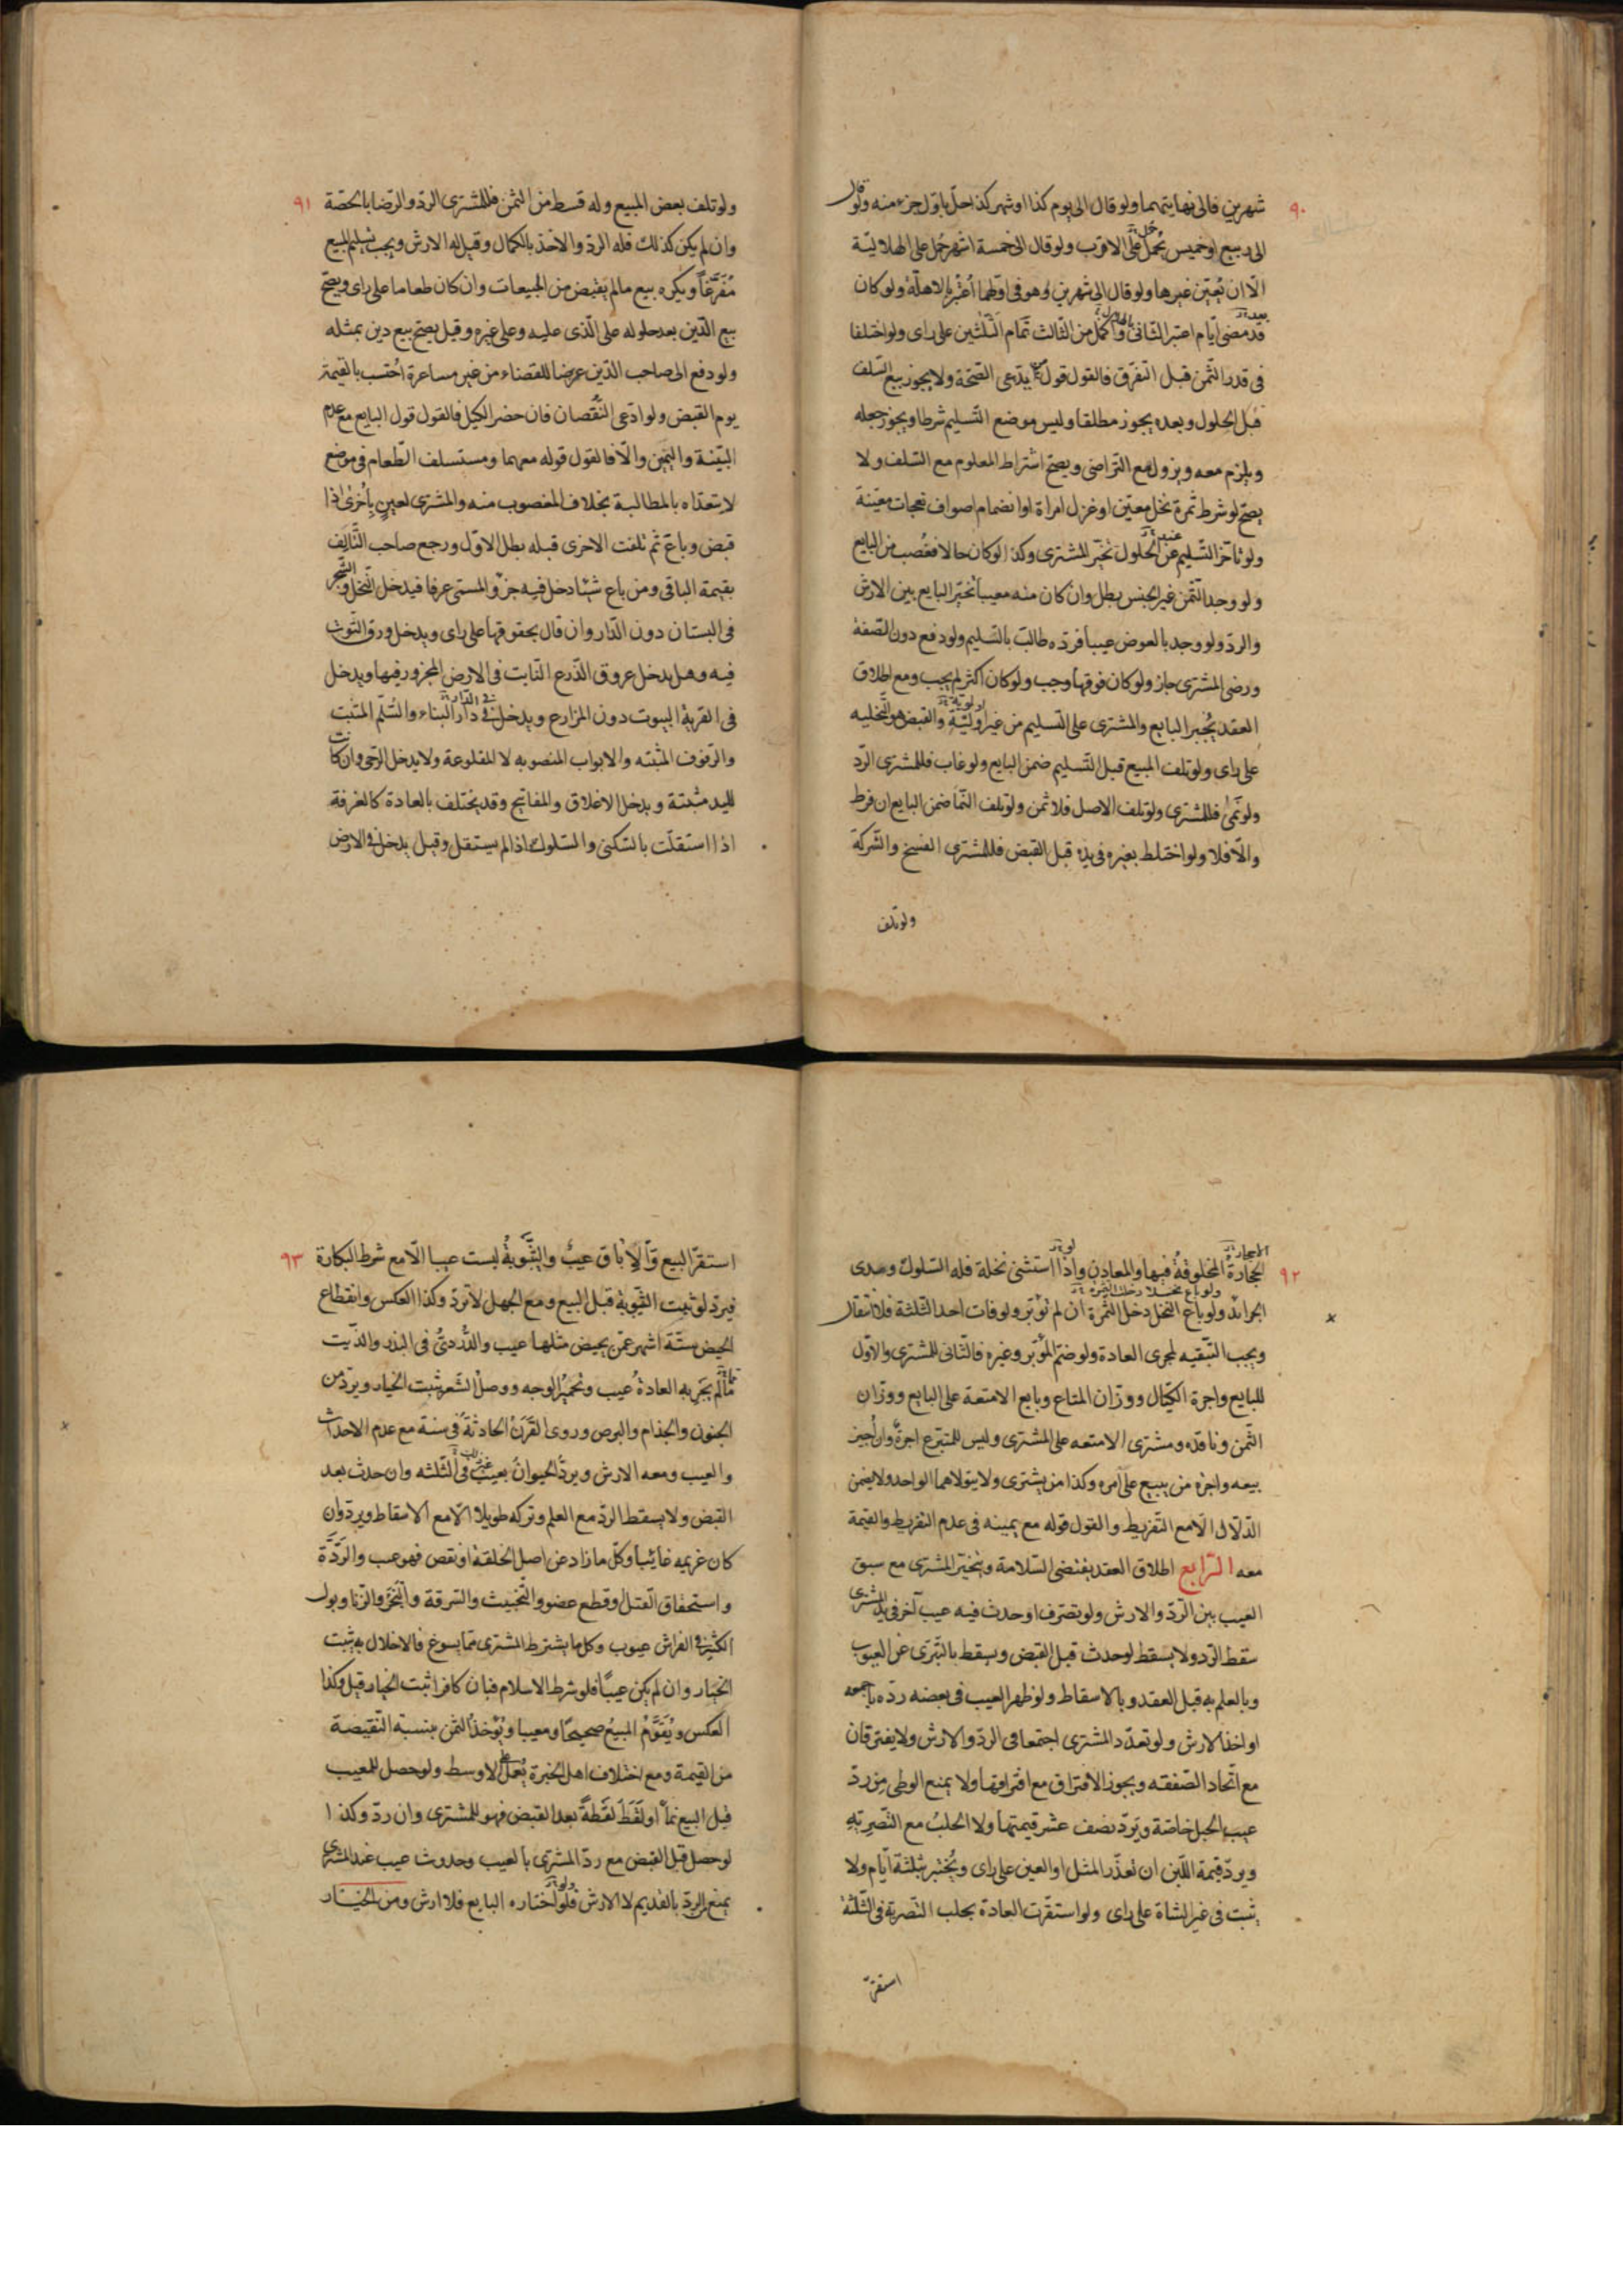 ٩٠
شهرين فالى نهايتهما ولو قال الى يوم كذا او شهر كذا حل باول جزء منه ولو قال
الى ربيع او خميس يحمل على الاقرب ولو قال الى خمسة اشهر حمل على الهلالية
الا ان يعين غيرها ولو قال الى شهرين وهو فى اولهما اعتبر بالاهلة ولو كان
قد مضى ايام اعتبر الثانى واكمل من الثالث تمام الثلثين على راى ولو اختلفا
فى قدر الثمن قبل التفرق فالقول قول من يدعى الصحة ولا يجوز بيع السلف
قبل الحلول وبعده يجوز مطلقا وليس موضع التسليم شرطا ويجوز جعله
ويلزم معه ويزول مع التراضى ويصح اشتراط المعلوم مع السلف ولا
يصح لو شرط ثمرة نخل معين او غزل امراة او انضمام اصواف نعجات معينة
ولو تاخر التسليم عن الحلول تخير المشترى وكذا لو كان حالا فغصب من البايع
ولو وجد الثمن غير الجنس بطل وان كان منه معيبا تخير البايع بين الارش
والرد ولو وجد بالعوض عيبا فرده طالب بالتسليم ولو دفع دون الصفة
ورضى المشترى جاز ولو كان فوقها وجب ولو كان اكثر لم يجب ومع اطلاق
العقد يجبر البايع والمشترى على التسليم من غير اولية والقبض هو التخليه
على راى ولو تلف المبيع قبل التسليم ضمن البايع ولو غاب فللمشترى الرد
ولو نمى فللمشترى ولو تلف الاصل فلا ثمن ولو تلف النما ضمن البايع ان فرط
والا فلا ولو اختلط بغيره فى يده قبل القبض فللمشترى الفسخ والشركة
ولو تلف
٩١
ولو تلف بعض المبيع وله قسط من الثمن فللمشترى الرد والرضا بالحصة
وان لم يكن كذلك فله الرد والاخذ بالكمال وقيل له الارش ويجب تسليم المبيع
مفرغا ويكره بيع مالم يقبض من المبيعات وان كان طعاما على راى ويصح
بيع الدين بعد حلوله على الذى عليه وعلى غيره وقيل يصح بيع دين بمثله
ولو دفع الى صاحب الدين عرضا للقضاء من غير مساعرة احتسب بالقيمة
يوم القبض ولو ادعى النقصان فان حضر الكيل فالقول قول البايع مع عدم
البينة واليمين والا فالقول قوله معهما ومستسلف الطعام فى موضع
لا يتعداه بالمطالبة بخلاف المغصوب منه والمشترى لعين باخرى اذا
قبض وباع ثم تلفت الاخرى قبله بطل الاول ورجع صاحب التالف
بقيمة الباقى ومن باع شيئا دخل فيه جزؤ المسمى عرفا فيدخل النخل والشجر
فى البستان دون الدار وان قال بحقوقها على راى ويدخل ورق التوث
فيه وهل يدخل عروق الذرع الثابت فى الارض المجزور فيها ويدخل
فى القرية البيوت دون المزارع ويدخل فى دار البناء والسلم المثبت
والرفوف المثبته والابواب المنصوبه لا المقلوعة ولا يدخل الرحى وان كانت
لليد مثبتة ويدخل الاغلاق والمفاتيح وقد يختلف بالعادة كالغرفة
اذا استقلت بالسكنى والسلوك اذا لم يستقل وقيل يدخل فى الارض
٩٢
الحجارة المخلوقة فيها والمعادن واذا استثنى نخلة فله السلوك ومدى
الجرائد ولو باع النخل دخل الثمرة ان لم تؤبر ولو فات احد الثلثة فلا انتقال
ويجب التبقيه لمجرى العادة ولو ضم المؤبر وغيره فالثانى للمشترى والاول
للبايع واجرة الكيال ووزان المتاع وبايع الامتعة على البايع ووزان
الثمن وناقده ومشترى الامتعه على المشترى وليس للمتبرع اجرة وان اجيز
بيعه واجرة من يبيع على آمره وكذا من يشترى ولا يتولاهما الواحد ولا يضمن
الدلال الا مع التفريط والقول قوله مع يمينه فى عدم التفريط والقيمة
معه الرابع اطلاق العقد يقتضى السلامة ويتخير المشترى مع سبق
العيب بين الرد والارش ولو تصرف او حدث فيه عيب آخر فى يد المشترى
سقط الرد ولا يسقط لو حدث قبل القبض ويسقط بالتبرى عن العيوب
وبالعلم به قبل العقد وبالاسقاط ولو ظهر العيب فى بعضه رده باجمعه
او اخذ الارش ولو تعدد المشترى اجتمعا فى الرد والارش ولا يفترقان
مع اتحاد الصفقه ويجوز الافتراق مع افتراقها ولا يمنع الوطى من رد
عيب الحبل خاصة ويرد نصف عشر قيمتها ولا الحلب مع التصريه
ويرد قيمة اللبن ان تعذر المثل او العين على راى ويختبر بثلثة ايام ولا
يثبت فى غير الشاة على راى ولو استقرت العادة بحلب التصرية فى الثلثة
استقر
٩٣
استقر البيع والاباق عيب والثيوبة ليست عيبا الا مع شرط البكارة
فيرد لو ثبت الثيوبة قبل البيع ومع الجهل لا ترد وكذا العكس وانقطاع
الحيض ستة اشهر عمن يحيض مثلها عيب والدردى فى البذر والذيت
مالم يجر به العادة عيب وتحمير الوجه ووصل الشعر يثبت الخيار ويرد من
الجنون والجذام والبرص وروى القرن الحادثة فى سنة مع عدم الاحداث
والعيب ومعه الارش ويرد الحيوان بعيب فى الثلثه وان حدث بعد
القبض ولا يسقط الرد مع العلم وتركه طويلا الا مع الاسقاط ويرد وان
كان غريمه غائبا وكل ما زاد عن اصل الخلقة او نقص فهو عيب والردة
واستحقاق القتل وقطع عضو والتخنيث والسرقة والبخر والزنا وبول
الكثير فى الفراش عيوب وكل ما يشترط المشترى مما يسوغ فالاخلال به يثبت
الخيار وان لم يكن عيبا فلو شرط الاسلام فبان كافرا ثبت الخيار قيل وكذا
العكس ويقوم المبيع صحيحا ومعيبا ويؤخذ الثمن بنسبة النقيصة
من القيمة ومع اختلاف اهل الخبرة يعمل الاوسط ولو حصل للمعيب
قبل البيع نما او لقط لقطة بعد القبض فهو للمشترى وان رد وكذا
لو حصل قبل القبض مع رد المشترى بالعيب وحدوث عيب عند المشترى
يمنع الرد بالقديم لا الارش فلو اختاره البايع فلا ارش ومن الخيار